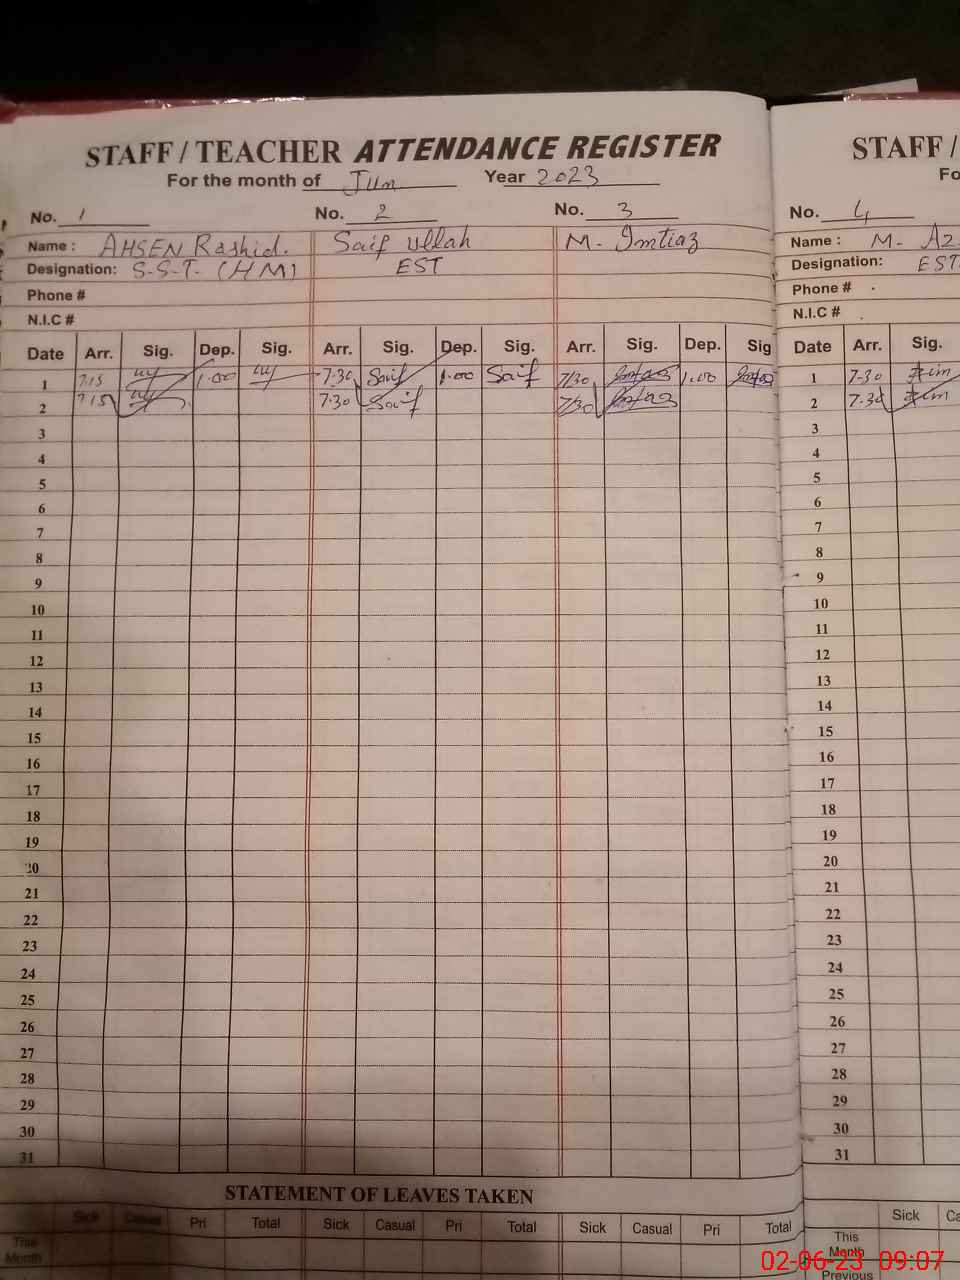 STAFF / TEACHER ATTENDANCE REGISTER
For the month of Jun Year 2023
No. 1 No. 2 No. 3
Name : AHSEN Rashid. Saif ullah M. Imtiaz
Designation: S.S.T. (HM) EST
Phone #
N.I.C #
Date Arr. Sig. Dep. Sig. Arr. Sig. Dep. Sig. Arr. Sig. Dep. Sig
1 7.15 1.00 7.30 Saif 1.00 Saif 7/30 Imtiaz 1.00 Imtiaz
2 7.15 7.30 Saif 7/30 Imtiaz
3
4
5
6
7
8
9
10
11
12
13
14
15
16
17
18
19
20
21
22
23
24
25
26
27
28
29
30
31
STATEMENT OF LEAVES TAKEN
Sick Casual Pri Total Sick Casual Pri Total Sick Casual Pri Total
This
Month
STAFF /
Fo
No. 4
Name : M. Az
Designation: EST
Phone #
N.I.C #
Date Arr. Sig.
1 7.30
2 7.30
3
4
5
6
7
8
9
10
11
12
13
14
15
16
17
18
19
20
21
22
23
24
25
26
27
28
29
30
31
Sick Ca
This
Month
Previous
02-06-23 09:07